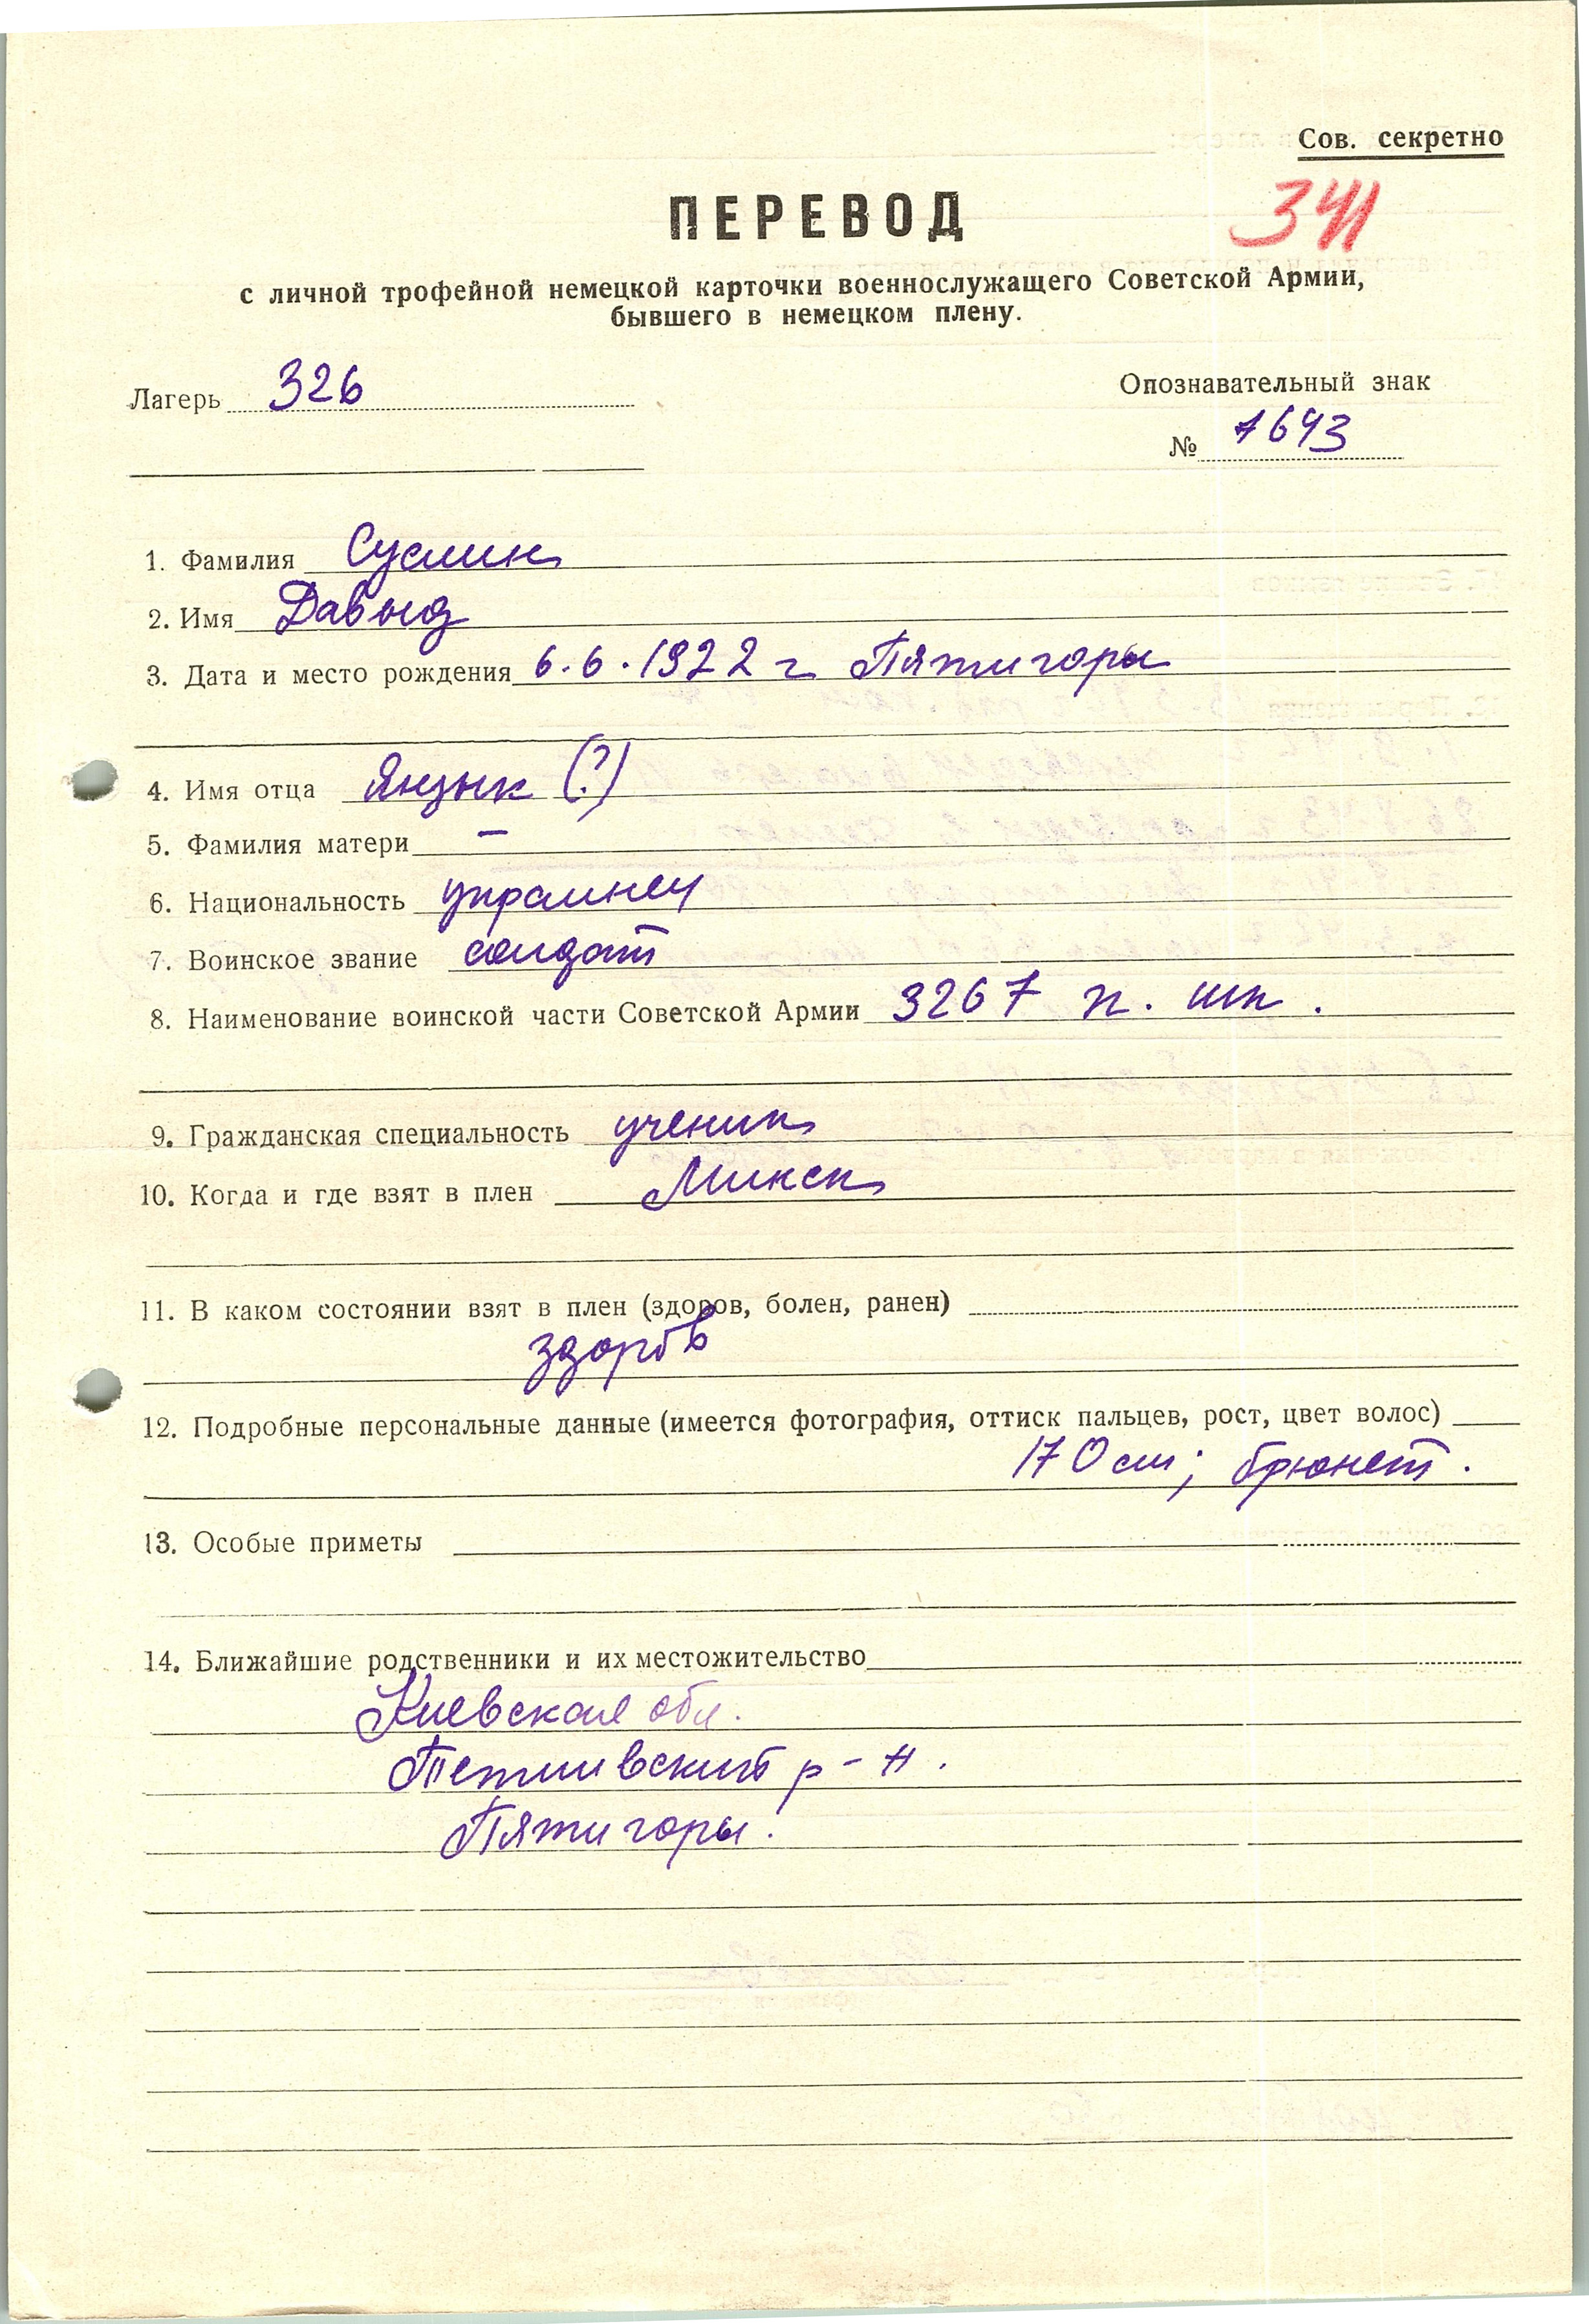 Сов. секретно
ПЕРЕВОД
341
с личной трофейной немецкой карточки военнослужащего Советской Армии,
бывшего в немецком плену.
Лагерь 326
Опознавательный знак
№ 7643
1. Фамилия Суслин
2. Имя Давыд
3. Дата и место рождения 6.6.1922 г Пятигоры
4. Имя отца Янзык (?)
5. Фамилия матери —
6. Национальность украинец
7. Воинское звание солдат
8. Наименование воинской части Советской Армии 3267 п. шк.
9. Гражданская специальность ученик
10. Когда и где взят в плен Минск
11. В каком состоянии взят в плен (здоров, болен, ранен)
здоров
12. Подробные персональные данные (имеется фотография, оттиск пальцев, рост, цвет волос)
170 см; брюнет.
13. Особые приметы
14. Ближайшие родственники и их местожительство
Киевская обл.
Тетиивский р-н.
Пятигоры.